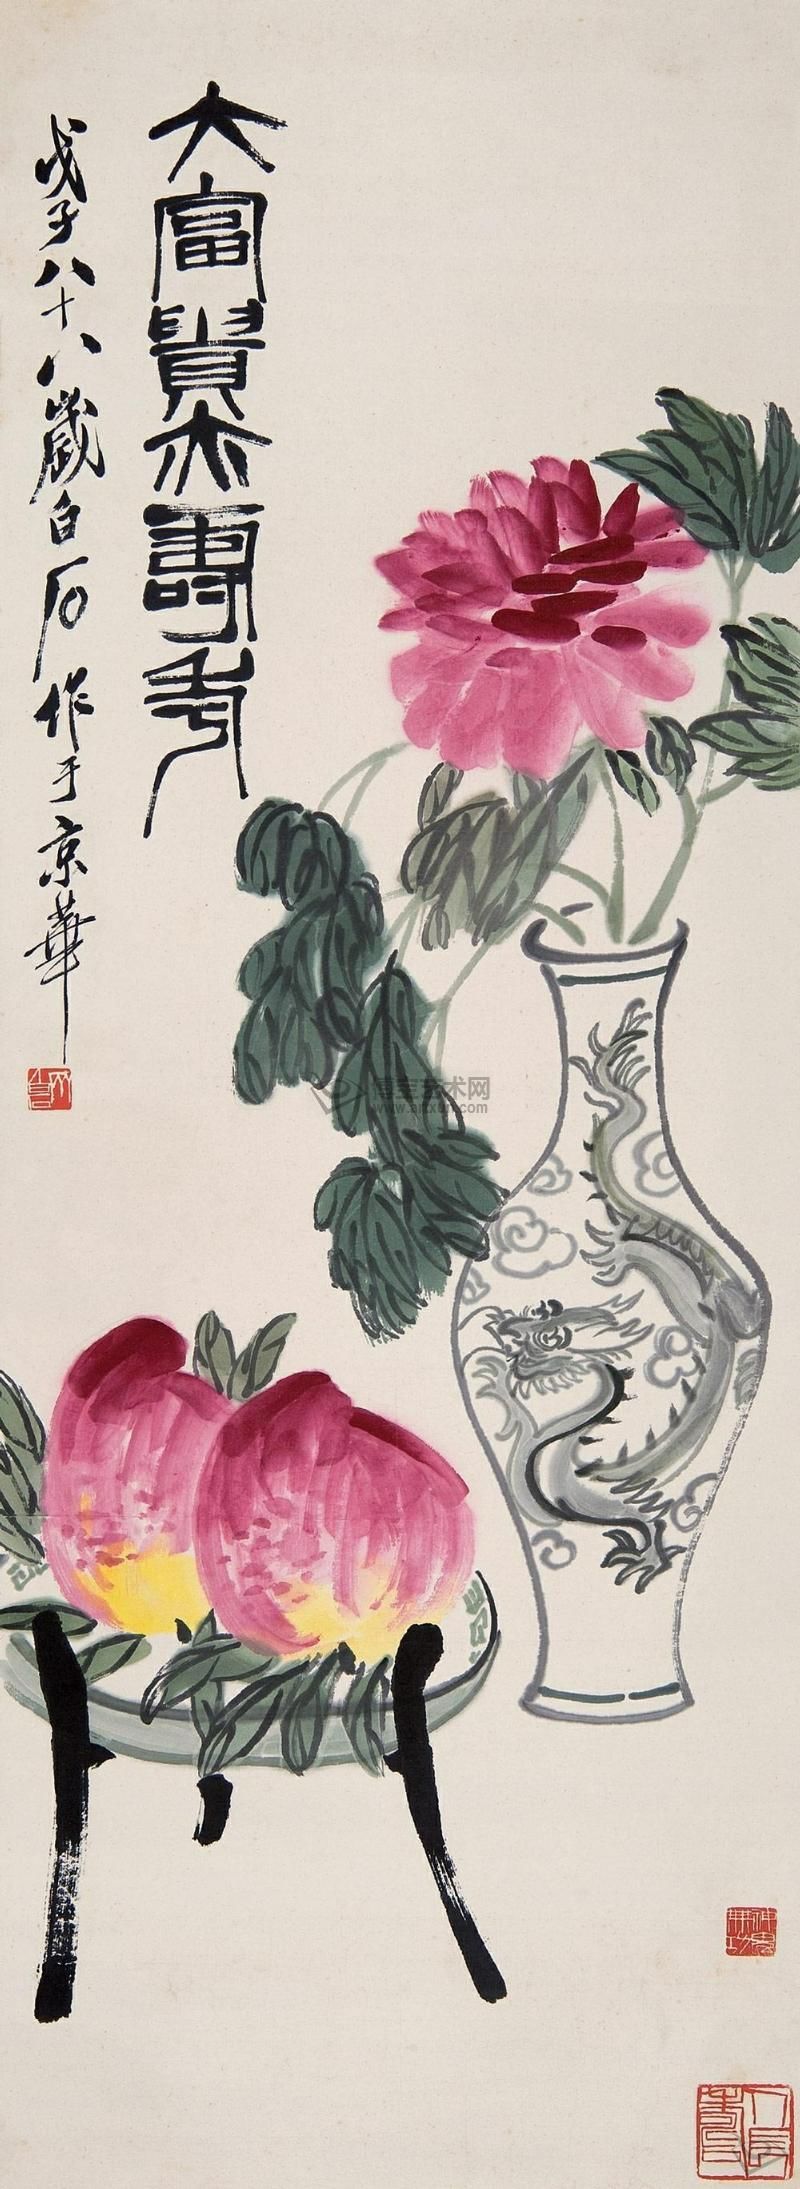 大富貴亦壽考
戊子八十八歲白石作于京華
博宝艺术网
www.artxun.com